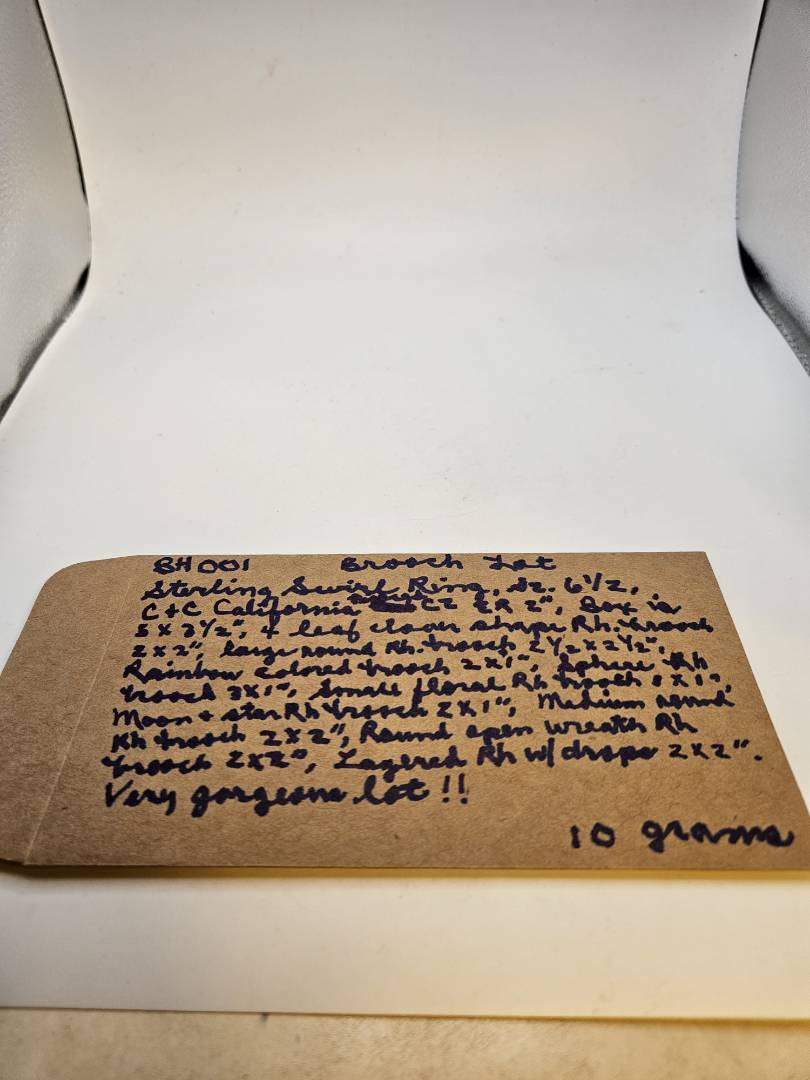 BH001 Brooch Lot
Sterling Swirl Ring, Sz. 6 1/2,
C+C California CZ ER 2", Box is
3 x 3 1/2", 4 leaf clover shape Rh. brooch
2 x 2", large round Rh. brooch 2 1/2 x 2 1/2",
Rainbow colored brooch 2 x 1", Sphere Rh
brooch 3 x 1", Small floral Rh brooch 1 x 1",
Moon + star Rh brooch 2 x 1", Medium round
Rh brooch 2 x 2", Round open wreath Rh
brooch 2 x 2", Layered Rh w/ drops 2 x 2".
Very gorgeous lot !!
10 grams